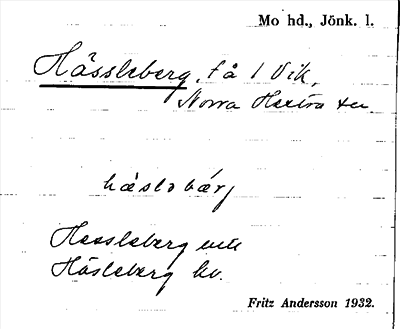 Mo hd., Jönk. l.
Hässleberg, få 1 Vik,
Norra Hestra sn.
Hessleberg
Häsleberg
Fritz Andersson 1932.